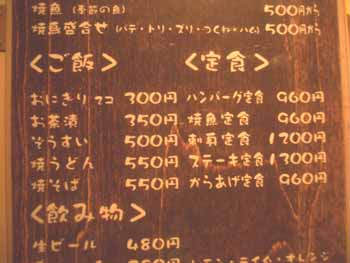 焼魚 (季節の魚) 500円から
焼鳥盛合せ (パテ・トリ・ズリ・つくね・ハム) 500円から
<ご飯>
おにぎり 2コ 300円
お茶漬 350円
ぞうすい 500円
焼うどん 550円
焼そば 550円
<飲み物>
生ビール 480円
<定食>
ハンバーグ定食 960円
焼魚定食 960円
刺身定食 1200円
ステーキ定食 1300円
からあげ定食 960円